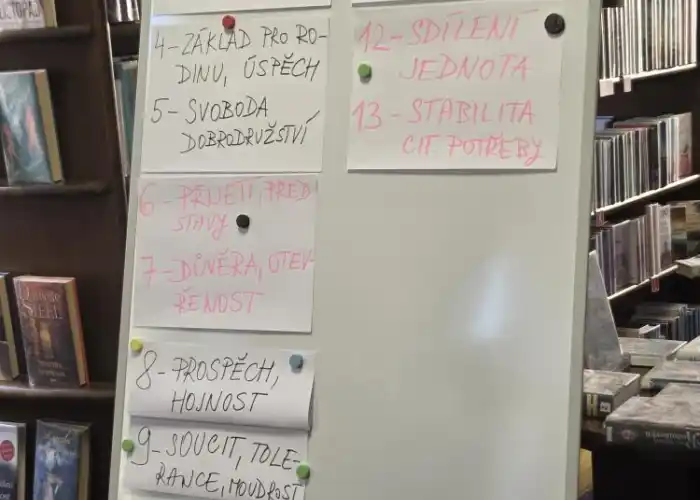 LISTOPAD
4 – ZÁKLAD PRO RO-
DINU, ÚSPĚCH
5 – SVOBODA
DOBRODRUŽSTVÍ
6 – PŘIJETÍ, PŘED
STAVY
7 – DŮVĚRA, OTEV-
ŘENOST
8 – PROSPĚCH,
HOJNOST
9 – SOUCIT, TOLE-
RANCE, MOUDROST
12 – SDÍLENÍ
JEDNOTA
13 – STABILITA
CIT POTŘEBY
STEEL